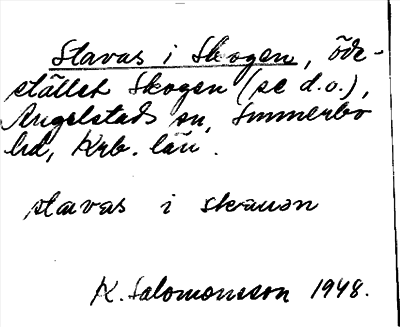 Slavas i Skogen, öde-
stället Skogen (se d.o.),
Angelstads sn, Sunnerbo
hd, Krb. län.
slavas i skauan
K. Salomonsson 1948.